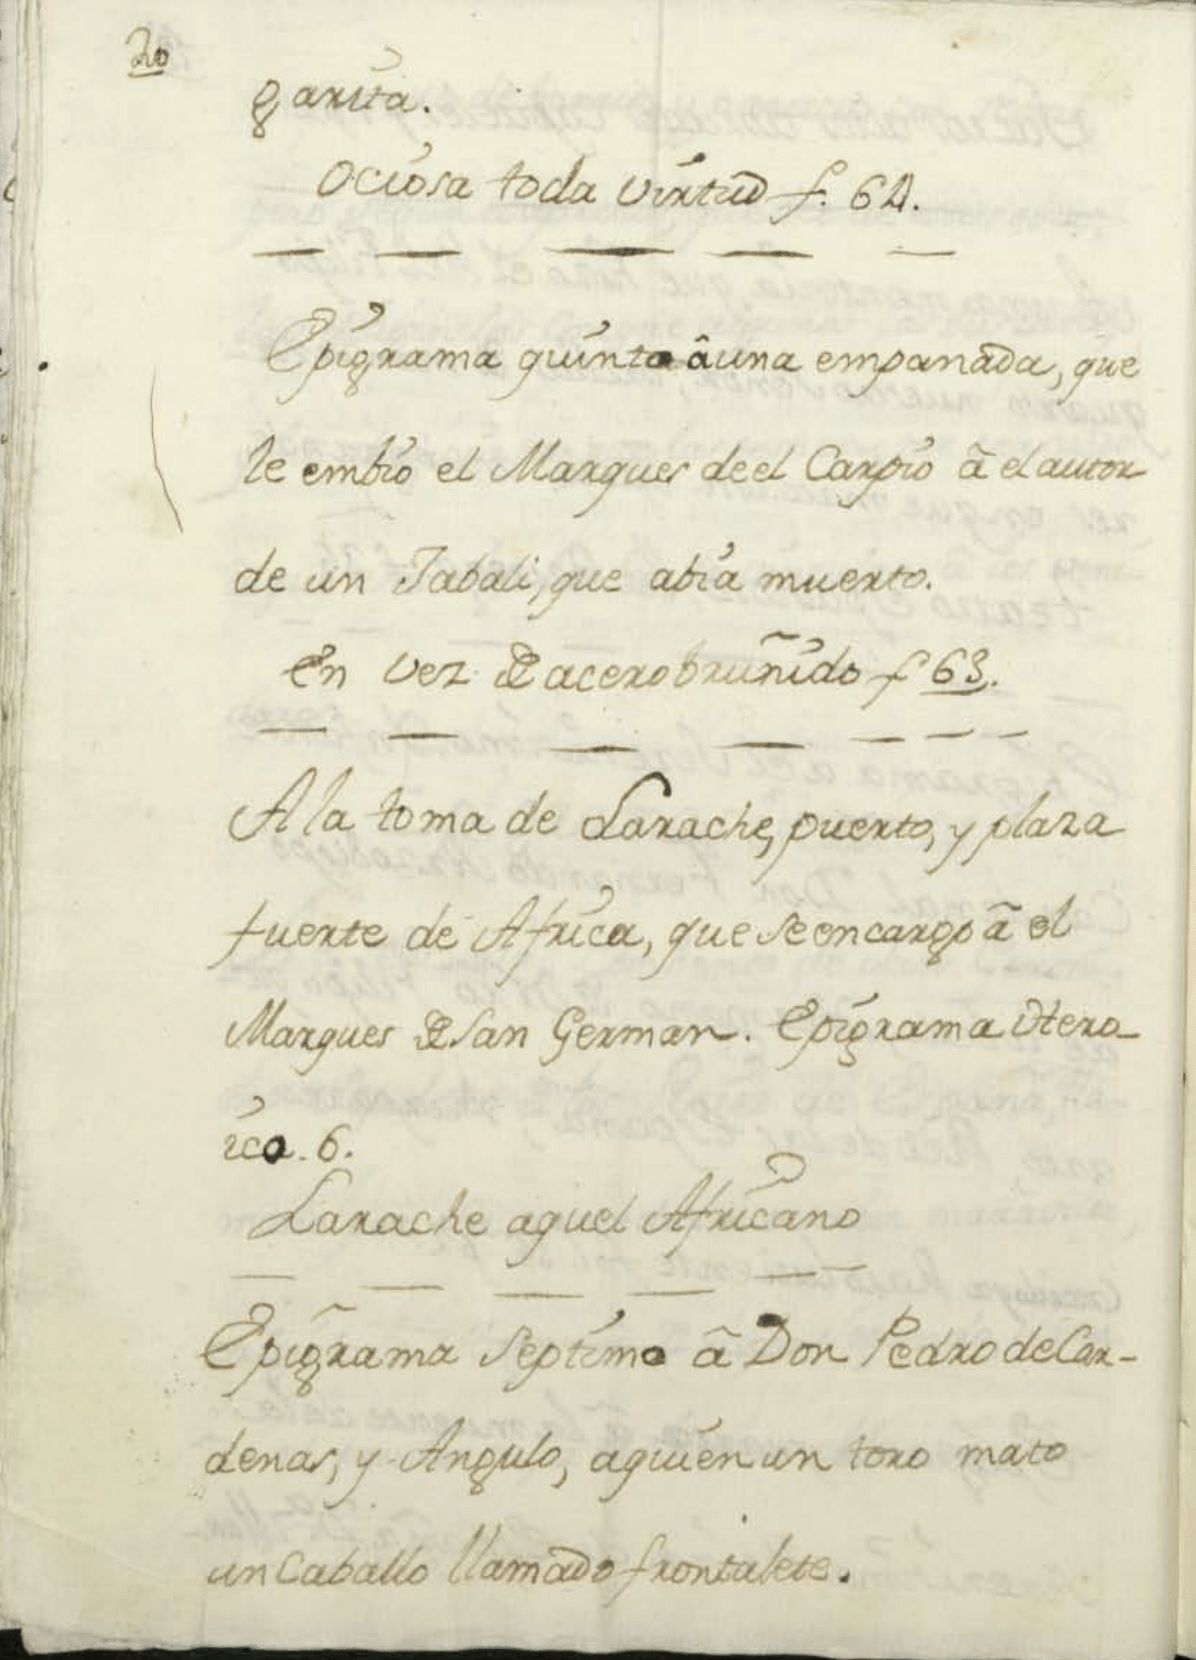 20
garita.
Ociosa toda virtud f. 64.
Epigrama quinto â una empanada, que
le embio el Marques de el Carpio â el autor
de un Jabali, que abia muerto.
En vez de acero bruñido f 63.
A la toma de Larache, puerto, y plaza
fuerte de Africa, que se encargo â el
Marques de San German. Epigrama
ico. 6.
Larache aquel Africano
Epigrama Septimo â Don Pedro de Car-
denas, y Angulo, aquien un toro mato
un Caballo llamado frontalete.